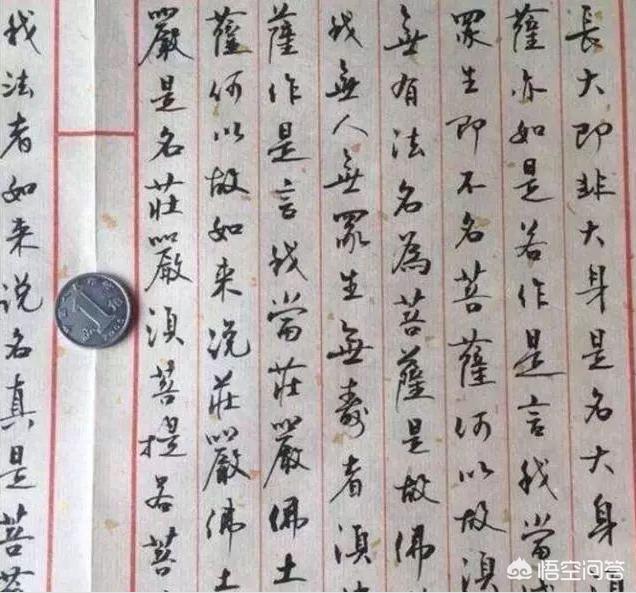 長大即非大身是名大身
薩亦如是若作是言我當
眾生即不名菩薩何以故湏
無有法名為菩薩是故佛
我無人無眾生無壽者湏
薩作是言我當莊嚴佛土
薩何以故如来说莊嚴佛土
嚴是名莊嚴湏菩提若菩
我法者如来说名真是菩
1
悟空问答